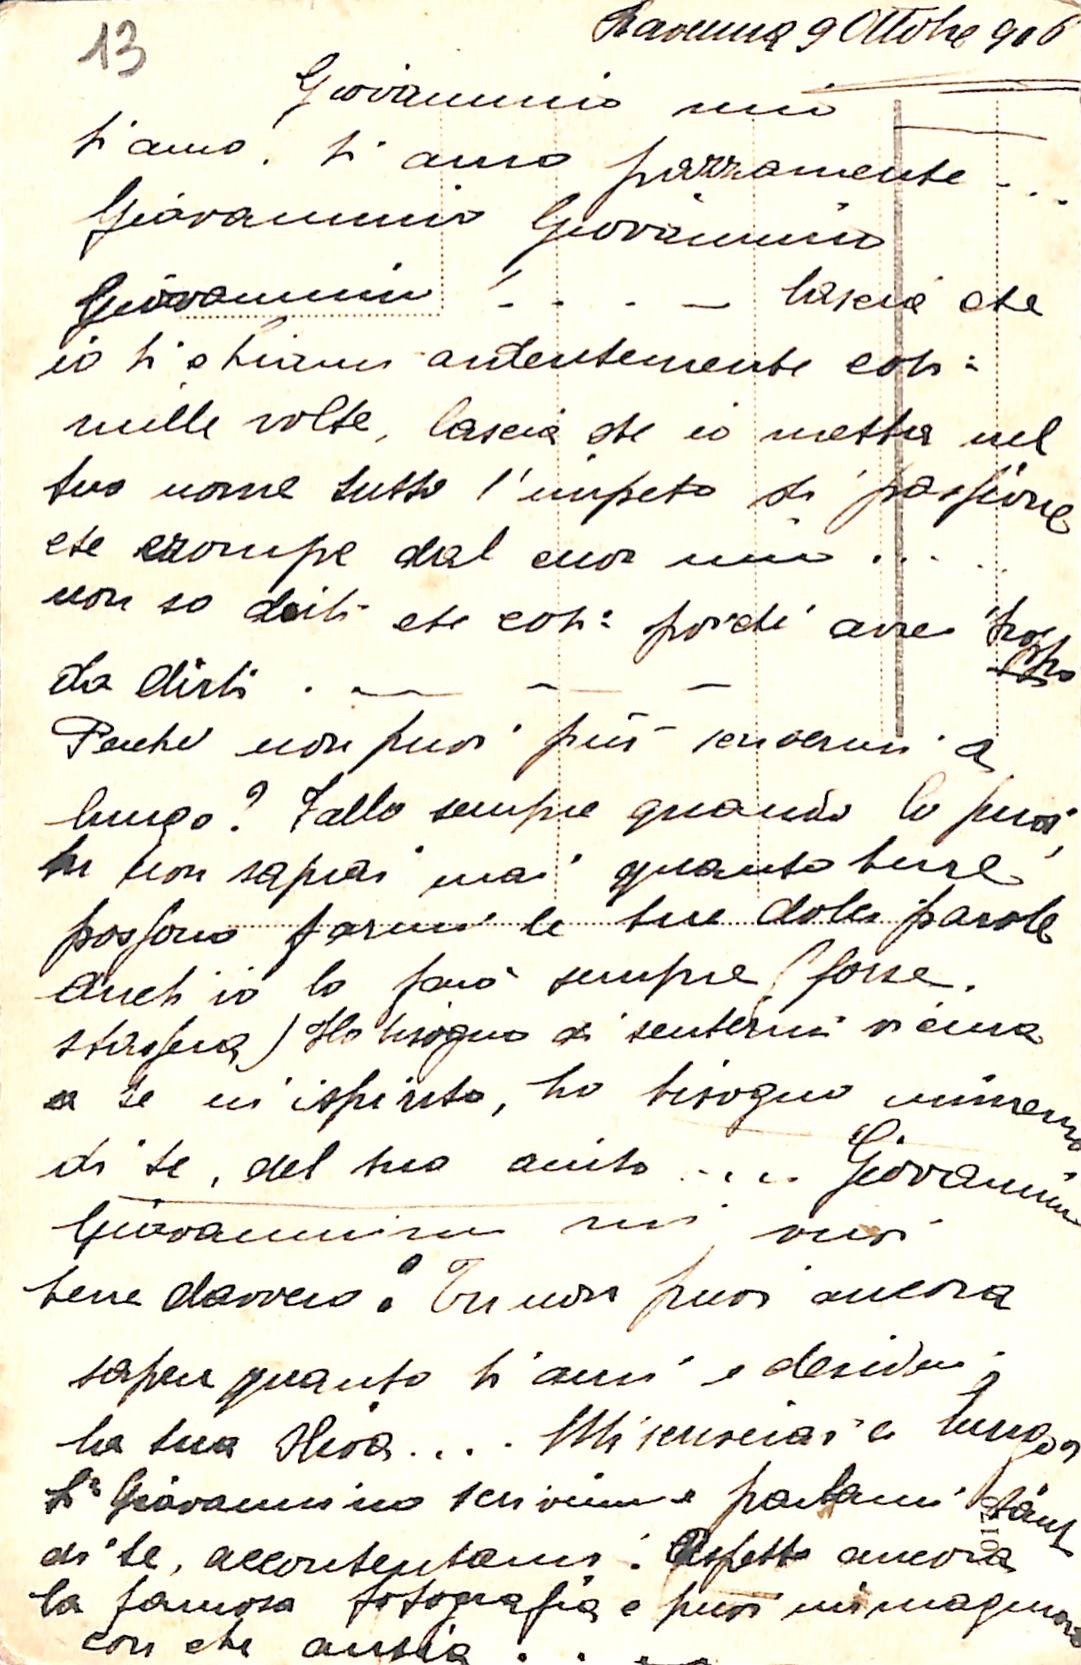 13
Ravenna 9 Ottobre 906
Giovannino mio
ti amo, ti amo pazzamente - . . .
Giovannino Giovannino
Giovannino ! - . . - lascia che
io ti chiami ardentemente così
mille volte, lascia che io metta nel
tuo nome tutto l'impeto di passione
che erompe dal cuor mio . . . .
non so dirti che così: poiché avrei troppo
da dirti . — - -
Perché non puoi più scrivermi a
lungo? Fallo sempre quando lo puoi,
tu non saprai mai quanto bene
possono farmi le tue dolci parole
Anch'io lo farò sempre (forse
stassera) Ho bisogno di sentirmi vicina
a te in ispirito, ho bisogno immenso
di te, del tuo aiuto . . . . Giovannino
Giovannino mi vuoi
bene davvero? Tu non puoi ancora
saper quanto ti ami e desideri
la tua . . . . Mi scriverai a lungo?
Sì Giovannino scrivimi e parlami tanto
di te, accontentami. Aspetto ancora
la famosa fotografia e puoi immaginare
con che ansia . . .